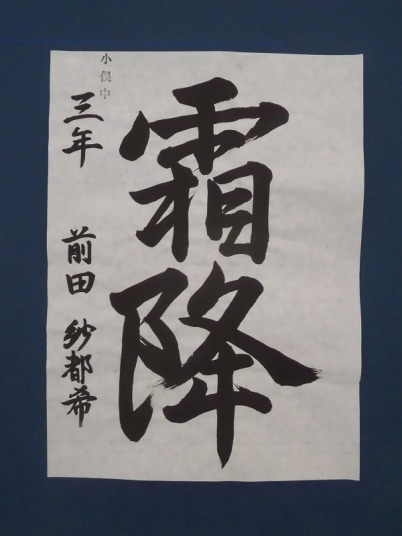 霜降
小俣中
三年 前田 紗都希